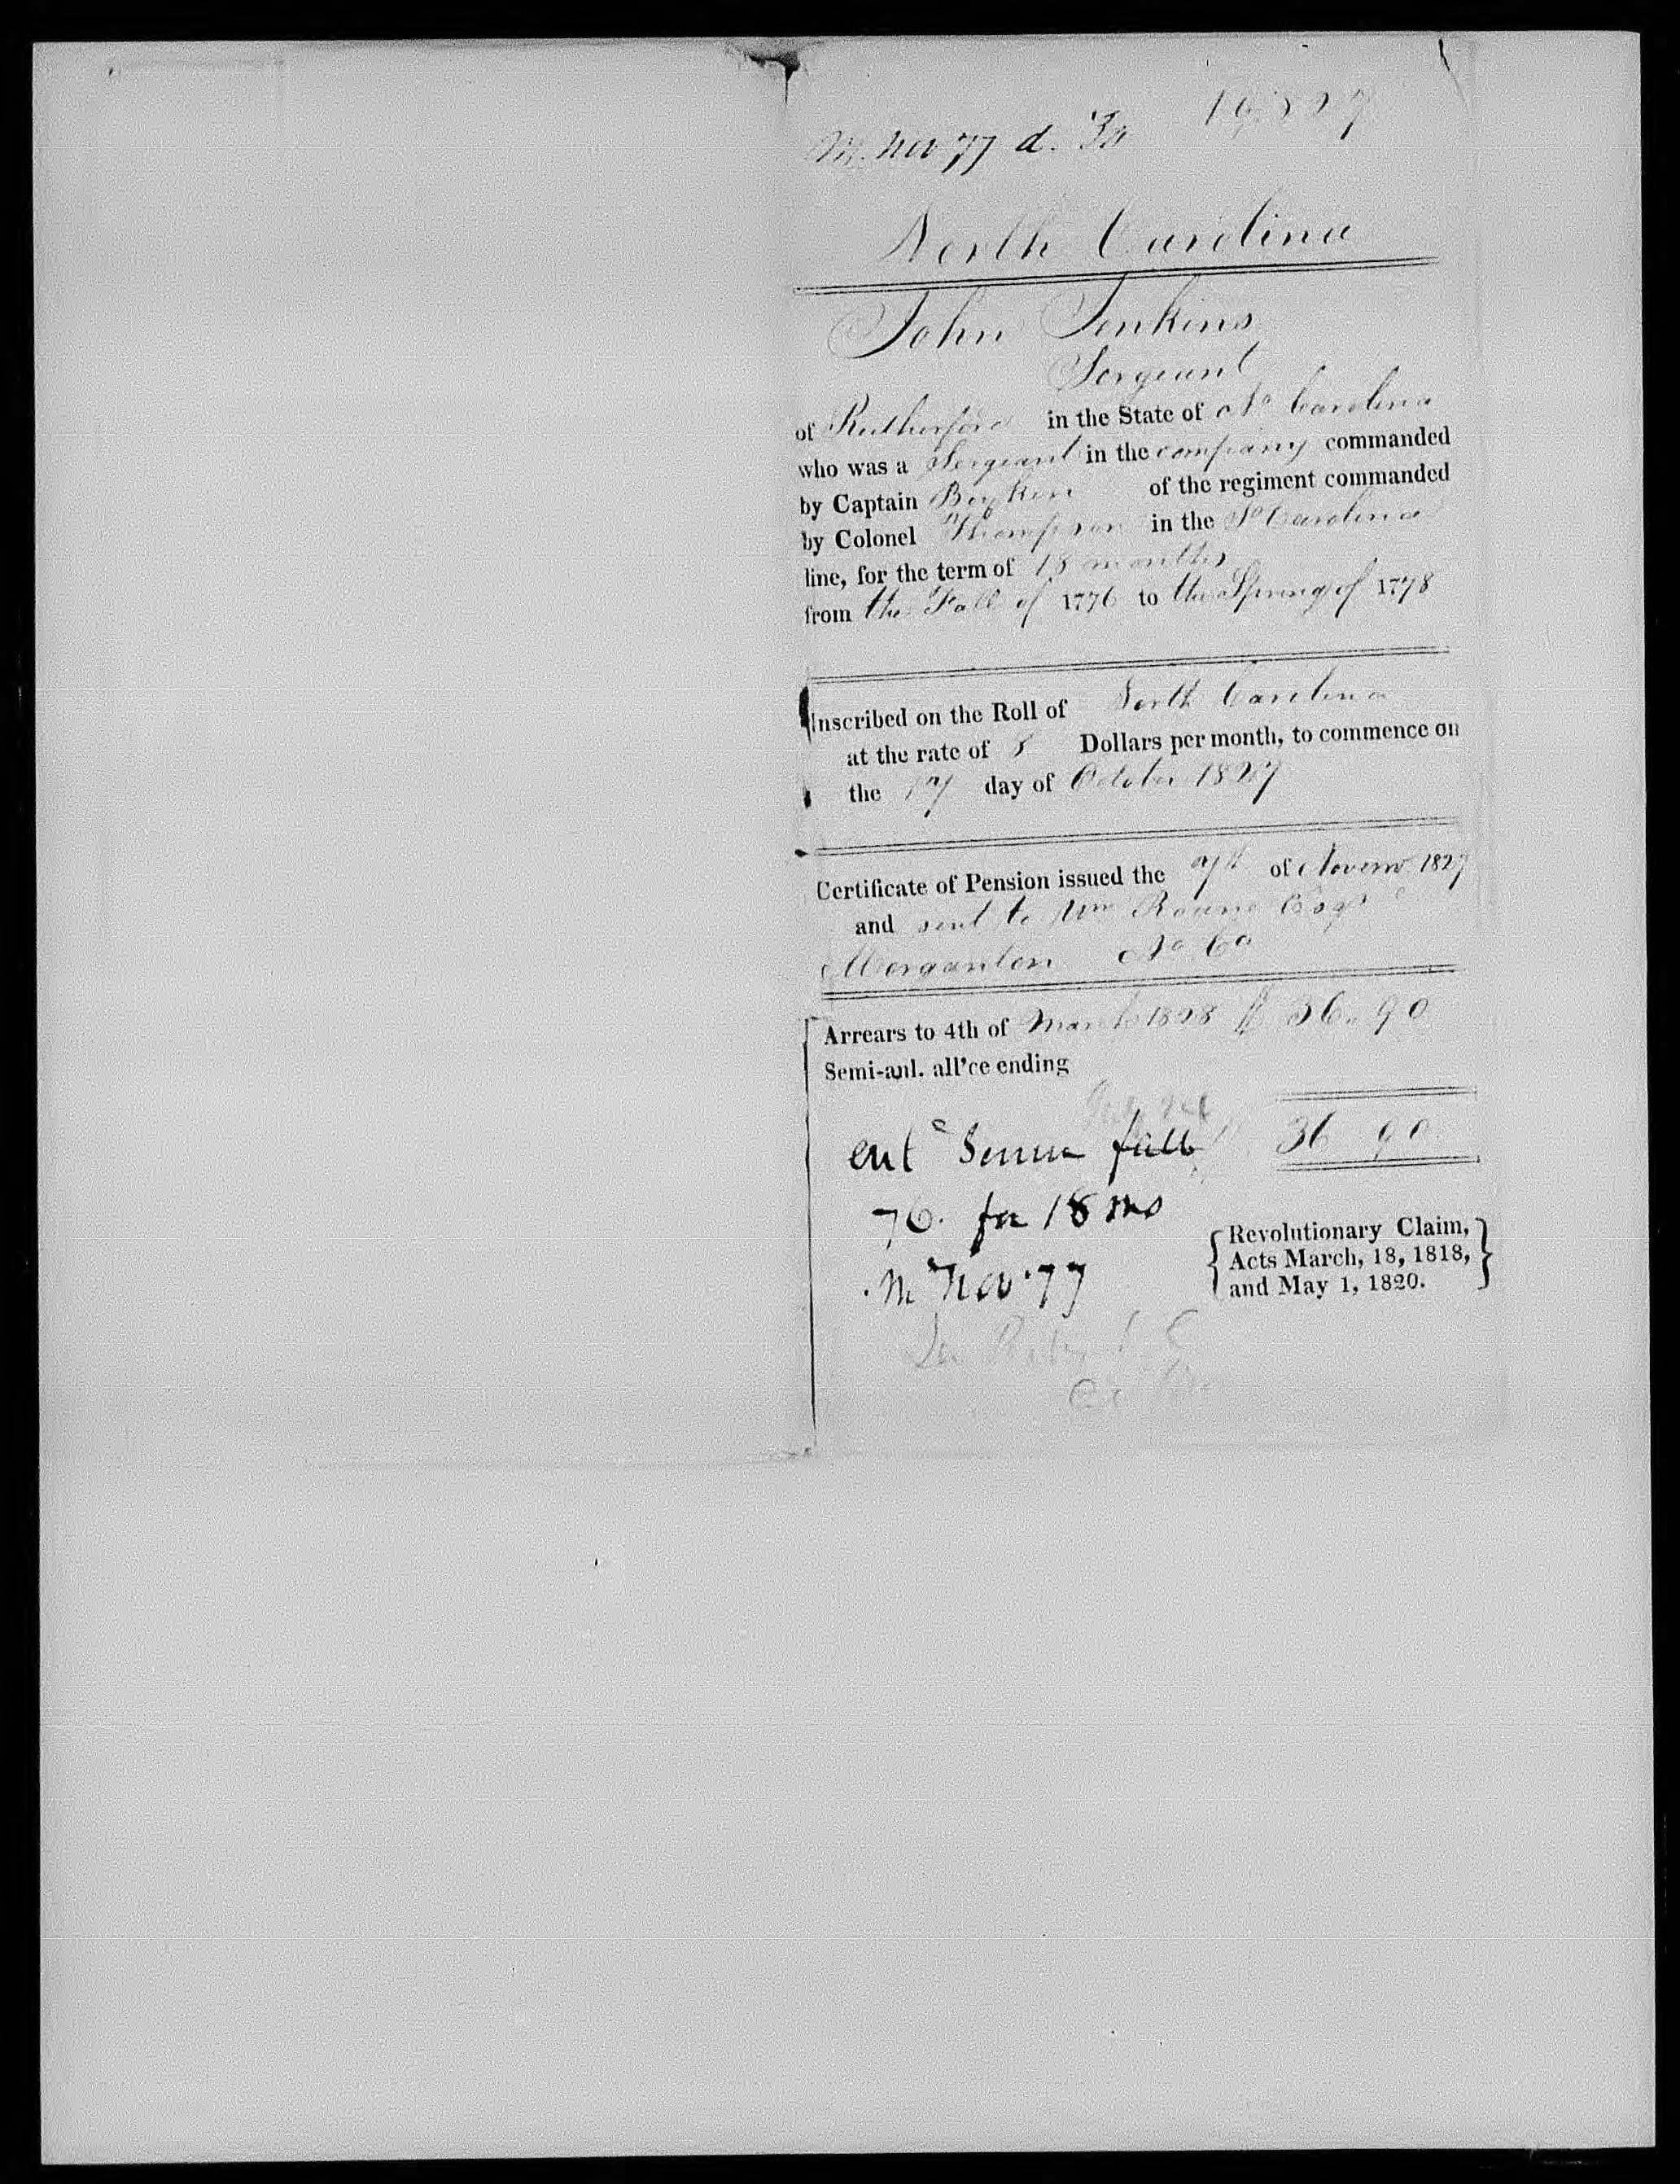 M. Nov 77 d. '30
North Carolina
John Jenkins
Sergeant
of Rutherford in the State of No Carolina
who was a Sergeant in the company commanded
by Captain Boykin of the regiment commanded
by Colonel Thompson in the So Carolina
line, for the term of 18 months
from the Fall of 1776 to the Spring of 1778
Inscribed on the Roll of North Carolina
at the rate of 8 Dollars per month, to commence on
the 17 day of October 1827
Certificate of Pension issued the 7th of Novemr 1827
and sent to Wm Esqr
Morganton No Ca
Arrears to 4th of March 1828 $ 36.90
Semi-anl. all'ce ending
36 90
ent fall
76. for 18 mos
m Nov '77
Revolutionary Claim,
Acts March, 18, 1818,
and May 1, 1820.